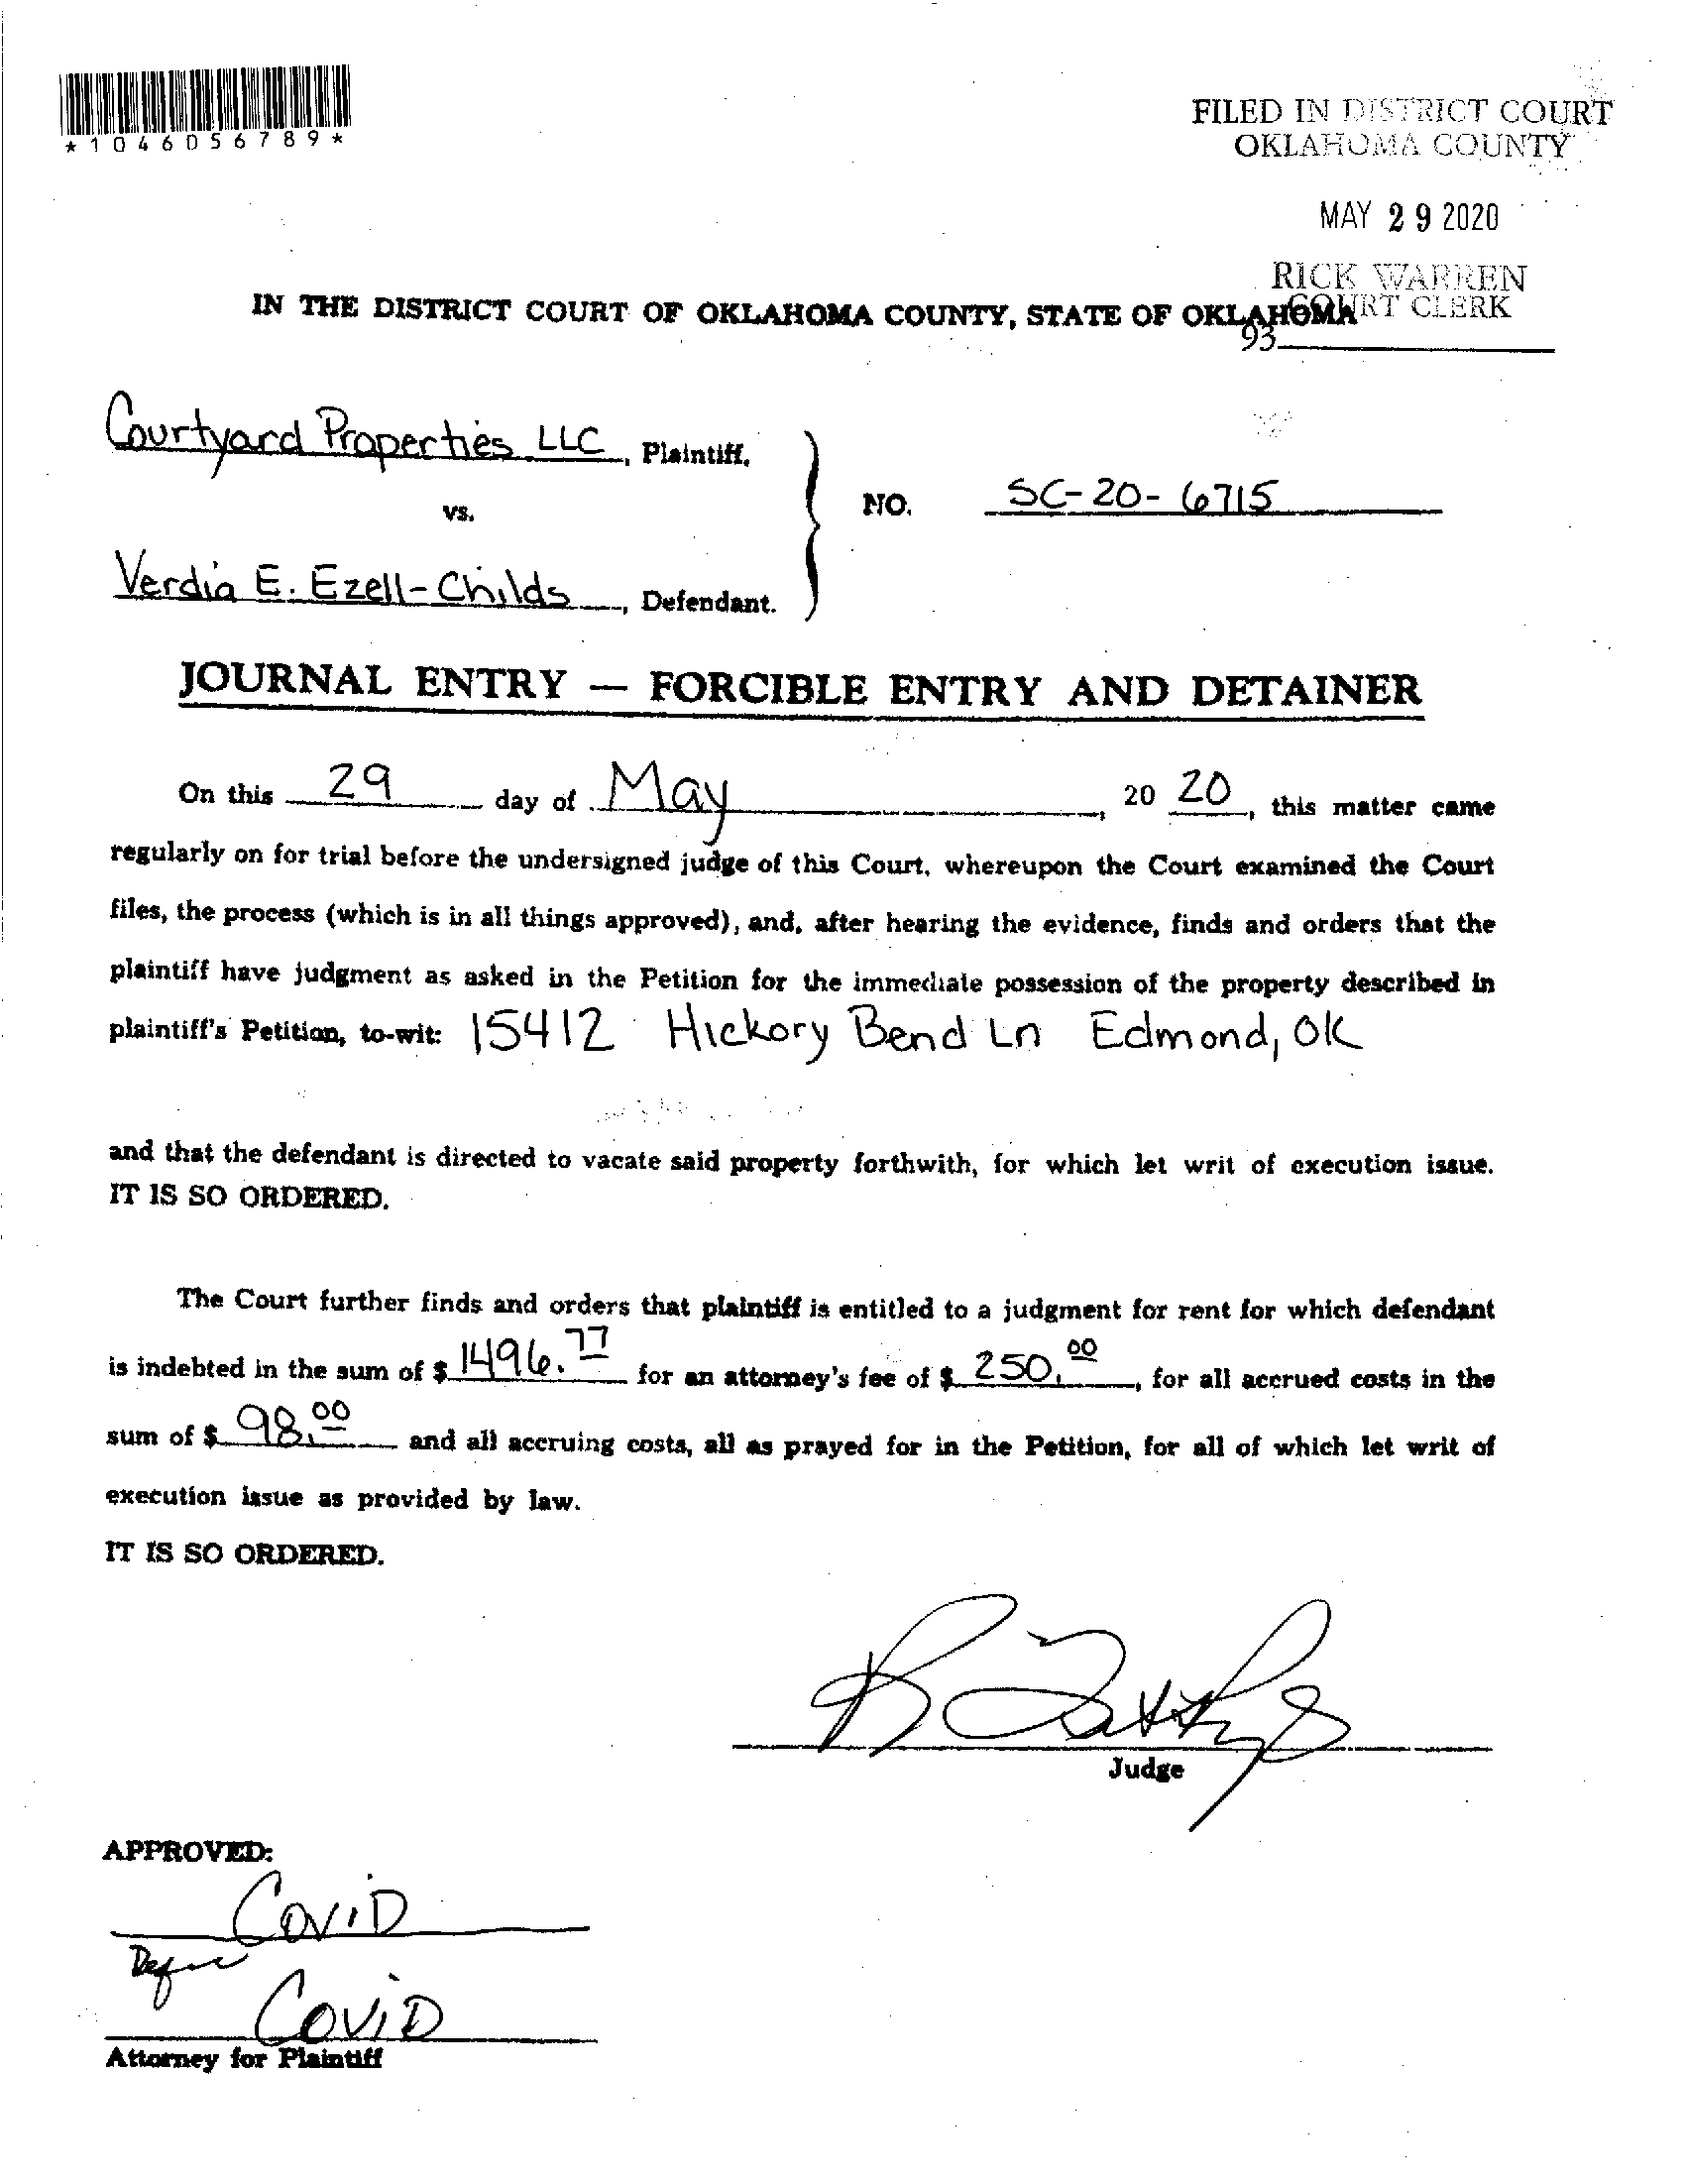 *1046056789*
FILED IN DISTRICT COURT
OKLAHOMA COUNTY
MAY 29 2020
RICK WARREN
COURT CLERK
93
IN THE DISTRICT COURT OF OKLAHOMA COUNTY, STATE OF OKLAHOMA
Courtyard Properties LLC, Plaintiff,
vs.
NO. SC-20-6715
Verdia E. Ezell-Childs, Defendant.
JOURNAL ENTRY — FORCIBLE ENTRY AND DETAINER
On this 29 day of May, 20 20, this matter came
regularly on for trial before the undersigned judge of this Court, whereupon the Court examined the Court
files, the process (which is in all things approved), and, after hearing the evidence, finds and orders that the
plaintiff have judgment as asked in the Petition for the immediate possession of the property described in
plaintiff's Petition, to-wit: 15412 Hickory Bend Ln Edmond, OK
and that the defendant is directed to vacate said property forthwith, for which let writ of execution issue.
IT IS SO ORDERED.
The Court further finds and orders that plaintiff is entitled to a judgment for rent for which defendant
is indebted in the sum of $ 1496.77 for an attorney's fee of $ 250.00, for all accrued costs in the
sum of $ 98.00 and all accruing costs, all as prayed for in the Petition, for all of which let writ of
execution issue as provided by law.
IT IS SO ORDERED.
Judge
APPROVED:
COVID
COVID
Attorney for Plaintiff